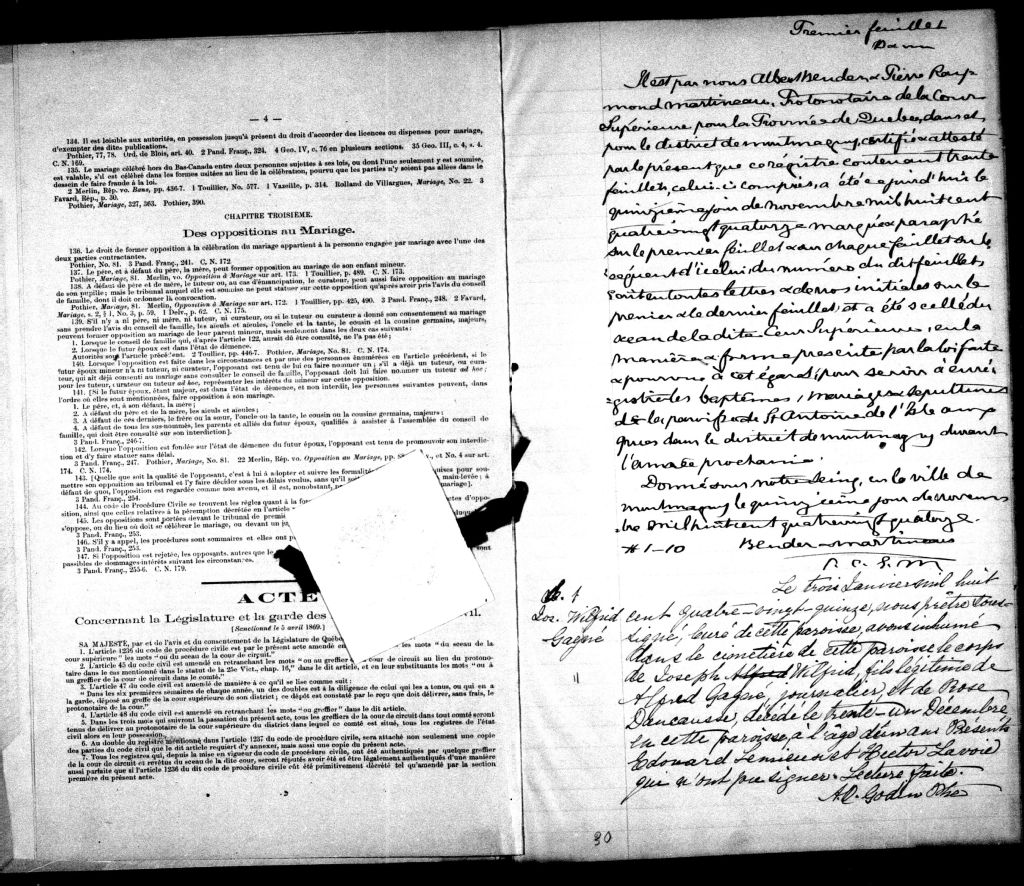 — 4 —
134. Il est loisible aux autorités, en possession jusqu'à présent du droit d'accorder des licences ou dispenses pour mariage,
d'exempter des dites publications.
Pothier, 77, 78. Ord. de Blois, art. 40. 2 Pand. Franç., 324. 4 Geo. IV, c. 76 en plusieurs sections. 35 Geo. III, c. 4, s. 4.
C. N. 169.
135. Le mariage célébré hors du Bas-Canada entre deux personnes sujettes à ses lois, ou dont l'une seulement y est soumise,
est valable, s'il est célébré dans les formes usitées au lieu de la célébration, pourvu que les parties n'y soient pas allées dans le
dessein de faire fraude à la loi.
2 Merlin, Rép. vo. Bans, pp. 436-7. 1 Touillier, No. 577. 1 Vazeille, p. 314. Rolland de Villargues, Mariage, No. 22. 3
Favard, Rép., p. 30.
Pothier, Mariage, 327, 363. Pothier, 390.
CHAPITRE TROISIÈME.
Des oppositions au Mariage.
136. Le droit de former opposition à la célébration du mariage appartient à la personne engagée par mariage avec l'une des
deux parties contractantes.
Pothier, No. 81. 3 Pand. Franç., 241. C. N. 172.
137. Le père, et à défaut du père, la mère, peut former opposition au mariage de son enfant mineur.
Pothier, Mariage, 81. Merlin, vo. Opposition à Mariage sur art. 173. 1 Touillier, p. 489. C. N. 173.
138. A défaut de père et de mère, le tuteur ou, au cas d'émancipation, le curateur, peut aussi faire opposition au mariage
de son pupille; mais le tribunal auquel elle est soumise ne peut statuer sur cette opposition qu'après avoir pris l'avis du conseil
de famille, dont il doit ordonner la convocation.
Pothier, Mariage, 81. Merlin, Opposition à Mariage sur art. 172. 1 Touillier, pp. 425, 490. 3 Pand. Franç., 248. 2 Favard,
Mariage, s. 2, § 1, No. 3, p. 59. 1 Delv., p. 62. C. N. 175.
139. S'il n'y a ni père, ni mère, ni tuteur, ni curateur, ou si le tuteur ou curateur a donné son consentement au mariage
sans prendre l'avis du conseil de famille, les aïeuls et aïeules, l'oncle et la tante, le cousin et la cousine germains, majeurs,
peuvent former opposition au mariage de leur parent mineur, mais seulement dans les deux cas suivants:
1. Lorsque le conseil de famille qui, d'après l'article 122, aurait dû être consulté, ne l'a pas été;
2. Lorsque le futur époux est dans l'état de démence.
Autorités sous l'article précédent. 2 Touillier, pp. 446-7. Pothier, Mariage, No. 81. C. N. 174.
140. Lorsque l'opposition est faite dans les circonstances et par une des personnes énumérées en l'article précédent, si le
futur époux mineur n'a ni tuteur, ni curateur, l'opposant est tenu de lui en faire nommer un; s'il a déjà un tuteur, ou curateur,
qui ait déjà consenti au mariage sans consulter le conseil de famille, l'opposant doit lui faire nommer un tuteur ad hoc;
pour les tuteur, curateur ou tuteur ad hoc, représenter les intérêts du mineur sur cette opposition.
141. [Si le futur époux, étant majeur, est dans l'état de démence, et non interdit, les personnes suivantes peuvent, dans
l'ordre où elles sont mentionnées, faire opposition à son mariage.
1. Le père, et, à son défaut, la mère;
2. A défaut du père et de la mère, les aïeuls et aïeules;
3. A défaut de ces derniers, le frère ou la sœur, l'oncle ou la tante, le cousin ou la cousine germains, majeurs;
4. A défaut de tous les sus-nommés, les parents et alliés du futur époux, qualifiés à assister à l'assemblée du conseil de
famille, qui doit être consulté sur son interdiction].
3 Pand. Franç., 246-7.
142. Lorsque l'opposition est fondée sur l'état de démence du futur époux, l'opposant est tenu de promouvoir son interdiction
et d'y faire statuer sans délai.
3 Pand. Franç., 247. Pothier, Mariage, No. 81. 22 Merlin, Rép. vo. Opposition au Mariage, pp. et No. 4 sur art.
174. C. N. 174.
143. [Quelle que soit la qualité de l'opposant, c'est à lui à adopter et suivre les formalités
mettre son opposition au tribunal et l'y faire décider sous les délais voulus, sans qu'il soit main-levée; à
défaut de quoi, l'opposition est regardée comme non avenu, et il est, nonobstant, mariage].
3 Pand. Franç., 254.
144. Au code de Procédure Civile se trouvent les règles quant à la actes d'opposition,
ainsi que celles relatives à la péremption décrétée en l'article
145. Les oppositions sont portées devant le tribunal de
s'oppose, ou du lieu où doit se célébrer le mariage, ou devant un
3 Pand. Franç., 253.
146. S'il y a appel, les procédures sont sommaires et elles ont
3 Pand. Franç., 253.
147. Si l'opposition est rejetée, les opposants, autres que sont
passibles de dommages-intérêts suivant les circonstances.
3 Pand. Franç., 255-6. C. N. 179.
ACTE
Concernant la Législature et la garde des vil.
[Sanctionné le 5 avril 1869.]
SA MAJESTÉ, par et de l'avis et du consentement de la Législature de Québec
1. L'article 1236 du code de procédure civile est par le présent acte amendé les mots "du sceau de la
cour supérieure" les mots "ou du sceau de la cour de circuit."
2. L'article 45 du code civil est amendé en retranchant les mots "ou au greffier cour de circuit au lieu du protonotaire
dans le cas mentionné dans le statut de la 25e Vict., chap. 16," dans le dit article, et en leur substituant les mots "ou à
un greffier de la cour de circuit dans le comté."
3. L'article 47 du code civil est amendé de manière à ce qu'il se lise comme suit:
"Dans les six premières semaines de chaque année, un des doubles est à la diligence de celui qui les a tenus, ou qui en a
la garde, déposé au greffe de la cour supérieure de son district; ce dépôt est constaté par le reçu que doit délivrer, sans frais, le
protonotaire de la cour."
4. L'article 48 du code civil est amendé en retranchant les mots "ou greffier" dans le dit article.
5. Dans les trois mois qui suivront la passation du présent acte, tous les greffiers de la cour de circuit dans tout comté seront
tenus de délivrer au protonotaire de la cour supérieure du district dans lequel ce comté est situé, tous les registres de l'état
civil alors en leur possession.
6. Au double du registre mentionné dans l'article 1237 du code de procédure civile, sera attaché non seulement une copie
des parties du code civil que le dit article requiert d'y annexer, mais aussi une copie du présent acte.
7. Tous les registres qui, depuis la mise en vigueur du code de procédure civile, ont été authentiqués par quelque greffier
de la cour de circuit et revêtus du sceau de la dite cour, seront réputés avoir été et être légalement authentiqués d'une manière
aussi parfaite que si l'article 1236 du dit code de procédure civile eût été primitivement décrété tel qu'amendé par la section
première du présent acte.
Premier feuillet
Il est par nous Albert Bender & Pierre Ray-
mond Martineau, Protonotaire de la Cour
Supérieure pour la Province de Quebec, dans et
pour le district de Montmagny, certifié & attesté
par le présent que ce régistre contenant trente
feuillets, celui-ci compris, a été aujourd'hui le
quinzième jour de novembre mil huit cent
quatre vingt quatorze marqué & paraphé
sur le premier feuillet & sur chaque feuillet sub
séquent d'icelui, du numéro du dit feuillets
écrit en toutes lettres & de nos initiales sur le
premier & le dernier feuillet, et a été scellé du
sceau de la dite Cour Supérieure, en la
manière & forme prescrite par la loi faite
& pourvue à cet égard; pour servir à enré-
gistrer les baptêmes, mariages & sépultures
de la paroisse de St Antoine de l'Isle aux
grues dans le district de Montmagny durant
l'année prochaine.
Donné sous notre seing, en la ville de
Montmagny le quinzième jour de novem
bre mil huit cent quatre vingt quatorze.
# 1-10 Bender & Martineau
P. C. S. M
S. 1
Jos. Wilfrid
Gagné
Le trois Janvier mil huit
cent quatre-vingt-quinze, nous prêtre sous-
signé, curé de cette paroisse, avons inhumé
dans le cimetière de cette paroisse le corps
de Joseph Alfred Wilfrid, fils légitime de
Alfred Gagné, journalier, et de Rose
Dancause, décédé le trente-un Décembre
en cette paroisse à l'âge d'un an. Présents
Edouard Lemieux et Hector Lavoie
qui n'ont pu signer. Lecture faite.
A. O. Godin Ptre
30